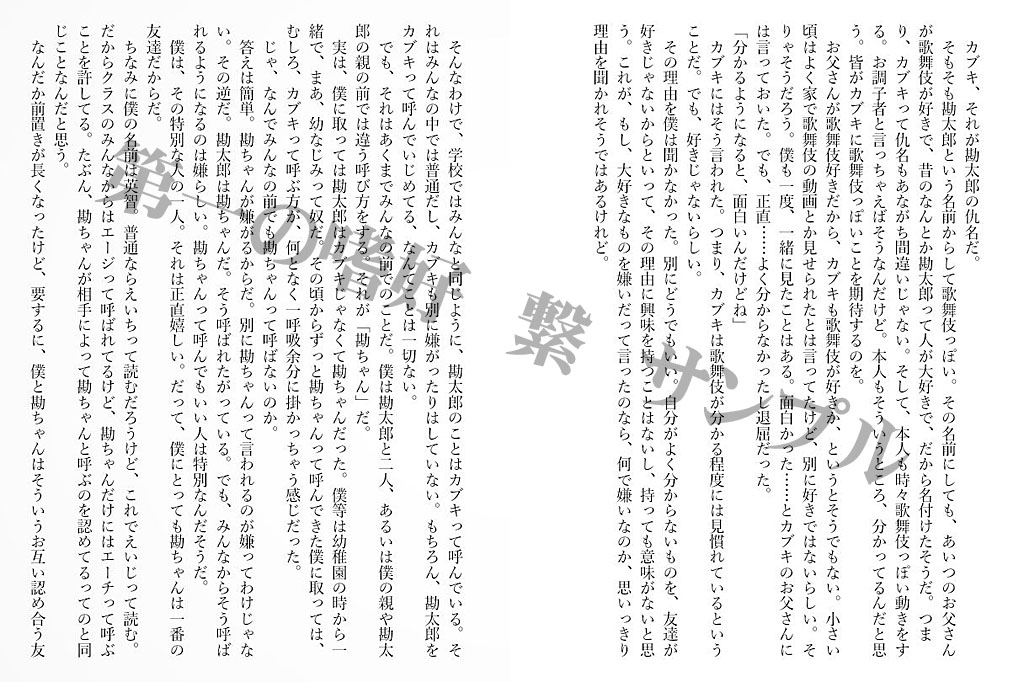 カブキ、それが勘太郎の仇名だ。
そもそも勘太郎という名前からして歌舞伎っぽい。その名前にしても、あいつのお父さん
が歌舞伎が好きで、昔のなんとか勘太郎って人が大好きで、だから名付けたそうだ。つま
り、カブキって仇名もあながち間違いじゃない。そして、本人も時々歌舞伎っぽい動きをす
る。お調子者と言っちゃえばそうなんだけど。本人もそういうところ、分かってるんだと思
う。皆がカブキに歌舞伎っぽいことを期待するのを。
お父さんが歌舞伎好きだから、カブキも歌舞伎が好きか、というとそうでもない。小さい
頃はよく家で歌舞伎の動画とか見せられたとは言ってたけど、別に好きではないらしい。そ
りゃそうだろう。僕も一度、一緒に見たことはある。面白かった……とカブキのお父さんに
は言っておいた。でも、正直……よく分からなかったし退屈だった。
「分かるようになると、面白いんだけどね」
カブキにはそう言われた。つまり、カブキは歌舞伎が分かる程度には見慣れているという
ことだ。でも、好きじゃないらしい。
その理由を僕は聞かなかった。別にどうでもいい。自分がよく分からないものを、友達が
好きじゃないからといって、その理由に興味を持つことはないし、持っても意味がないと思
う。これが、もし、大好きなものを嫌いだって言ったのなら、何で嫌いなのか、思いっきり
理由を聞かれそうではあるけれど。
そんなわけで、学校ではみんなと同じように、勘太郎のことはカブキって呼んでいる。そ
れはみんなの中では普通だし、カブキも別に嫌がったりはしていない。もちろん、勘太郎を
カブキって呼んでいじめてる、なんてことは一切ない。
でも、それはあくまでみんなの前でのことだ。僕は勘太郎と二人、あるいは僕の親や勘太
郎の親の前では違う呼び方をする。それが「勘ちゃん」だ。
実は、僕に取っては勘太郎はカブキじゃなくて勘ちゃんだった。僕等は幼稚園の時から一
緒で、まあ、幼なじみって奴だ。その頃からずっと勘ちゃんって呼んできた僕に取っては、
むしろ、カブキって呼ぶ方が、何となく一呼吸余分に掛かっちゃう感じだった。
じゃ、なんでみんなの前でも勘ちゃんって呼ばないのか。
答えは簡単。勘ちゃんが嫌がるからだ。別に勘ちゃんって言われるのが嫌ってわけじゃな
い。その逆だ。勘太郎は勘ちゃんだ。そう呼ばれたがっている。でも、みんなからそう呼ば
れるようになるのは嫌らしい。勘ちゃんって呼んでもいい人は特別なんだそうだ。
僕は、その特別な人の一人。それは正直嬉しい。だって、僕にとっても勘ちゃんは一番の
友達だからだ。
ちなみに僕の名前は英智。普通ならえいちって読むだろうけど、これでえいじって読む。
だからクラスのみんなからはエージって呼ばれてるけど、勘ちゃんだけにはエーチって呼ぶ
ことを許してる。たぶん、勘ちゃんが相手によって勘ちゃんと呼ぶのを認めてるってのと同
じことなんだと思う。
なんだか前置きが長くなったけど、要するに、僕と勘ちゃんはそういうお互い認め合う友
第一の階所 繋 サンプル